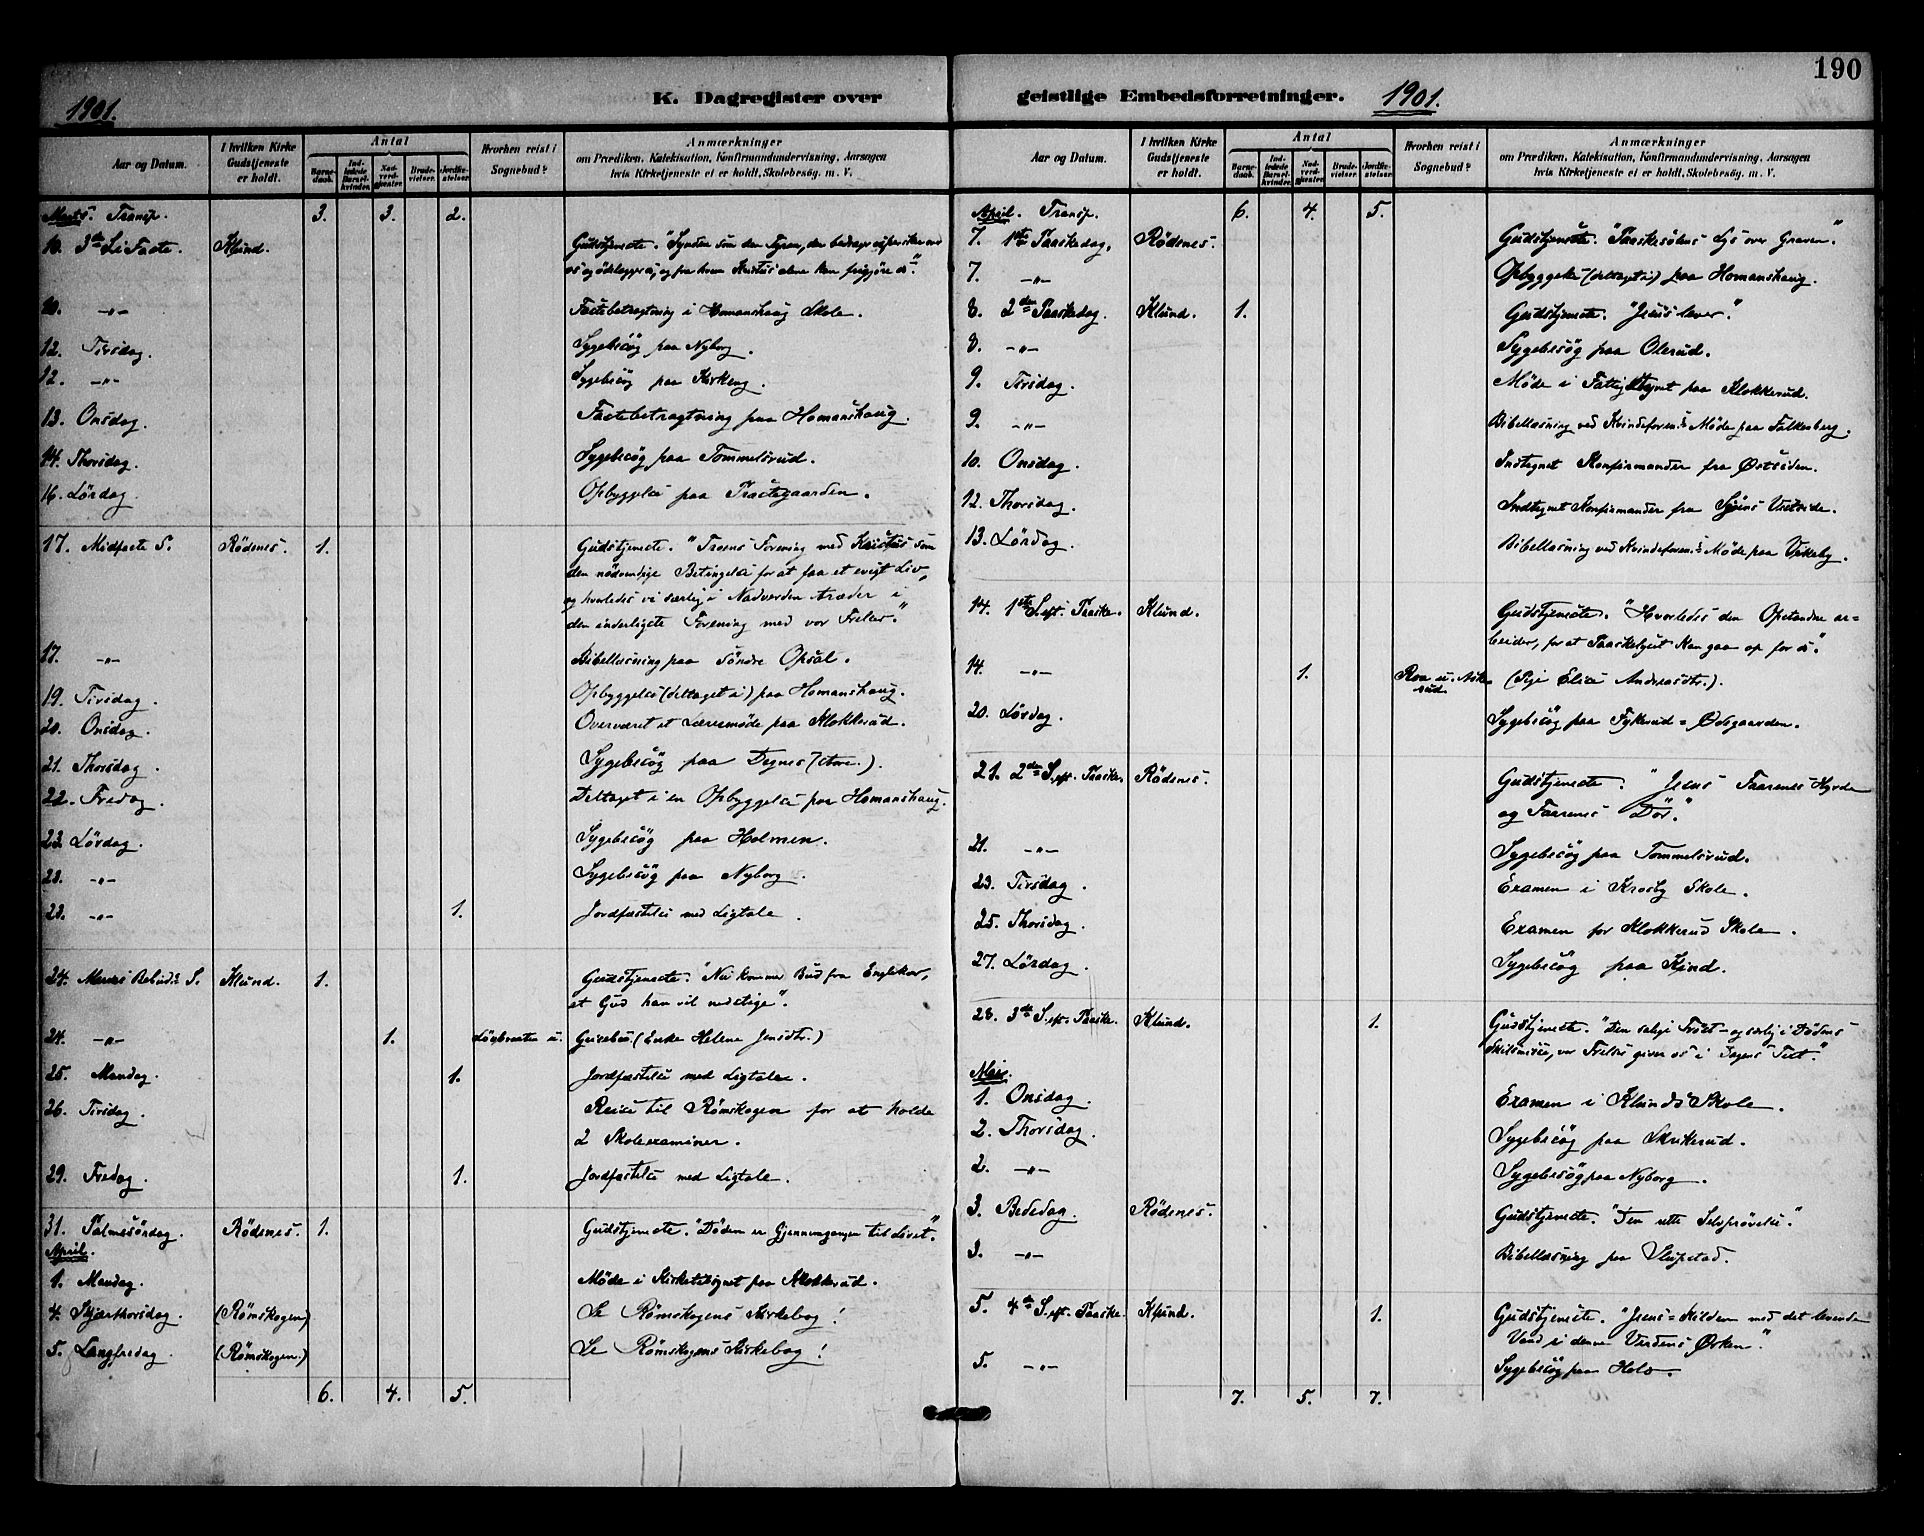 190
1901.
K. Dagregister over
geistlige Embedsforretninger. 1901.
Aar og Datum.
I hvilken Kirke Gudstjeneste er holdt.
Antal
Barnedaab.
Indledede Barselkvinder.
Nadverdgjæster.
Brudevielser.
Jordfæstelser.
Hvorhen reist i Sognebud?
Anmærkninger
om Prædiken, Katekisation, Konfirmandundervisning, Aarsagen
hvis Kirketjeneste ei er holdt, Skolebesøg, m. V.
Marts. Transp. 3. 3. 2.
10. 3die S. i Faste. Klund. Gudstjeneste. "Synden som den Tyran, der
os og ødelægger os, og fra hvem Kristus alene kan frigjøre os".
10. -"- Fastebetragtning i Homanshaug Skole.
12. Tirsdag. Sygebesøg paa Nyborg.
12. -"- Sygebesøg paa Kirkeng.
13. Onsdag. Fastebetragtning paa Homanshaug.
14. Thorsdag. Sygebesøg paa Tommelsrud.
16. Lördag. Opbyggelse paa Præstegaarden.
17. Midfaste S. Rødenes. 1. Gudstjeneste. "Troens Forening med Kristus som
den nødvendige Betingelse for at faa et evigt Liv,
og hvorledes vi særlig i Nadverden træder i
den inderligste Forening med vor Frelser."
17. -"- Bibellæsning paa Søndre Opsal.
19. Tirsdag. Opbyggelse (deltaget i) paa Homanshaug.
20. Onsdag. Overværet et Læremøde paa Klokkerud.
21. Thorsdag. Sygebesøg paa Degnes (store).
22. Fredag. Deltaget i en Opbyggelse paa Homanshaug.
23. Lördag. Sygebesøg paa Holmen.
23. -"- Sygebesøg paa Nyborg.
23. -"- 1. Jordfæstelse med Ligtale.
24. Marias Bebud. S. Klund. 1. Gudstjeneste. "Nu kommer Bud fra Englekor,
at Gud han vil nedstige".
24. -"- 1. u. (Enke Helene Jensdtr.)
25. Mandag. 1. Jordfæstelse med Ligtale.
26. Tirsdag. Reise til Römskogen for at holde
2 Skoleexaminer.
29. Fredag. 1. Jordfæstelse med Ligtale.
31. Palmesöndag. Rödenes. 1. Gudstjeneste. "Döden er Gjennemgangen til Livet."
April.
1. Mandag. Möde i Kirketilsynet paa Klokkerud.
4. Skjærthorsdag. (Römskogen) Se Römskogens Kirkebog!
5. Langfredag. (Römskogen.) Se Römskogens Kirkebog!
6. 4. 5.
Aar og Datum.
I hvilken Kirke Gudstjeneste er holdt.
Antal
Barnedaab.
Indledede Barselkvinder.
Nadverdgjæster.
Brudevielser.
Jordfæstelser.
Hvorhen reist i Sognebud?
Anmærkninger
om Prædiken, Katekisation, Konfirmandundervisning, Aarsagen
hvis Kirketjeneste ei er holdt, Skolebesøg, m. V.
April. Transp. 6. 4. 5.
7. 1ste Paaskedag. Rödenes. Gudstjeneste. "Paaskesolens Lys over Graven."
7. -"- Opbyggelse (deltaget i) paa Homanshaug.
8. 2den Paaskedag. Klund. 1. Gudstjeneste. "Jesus lever".
8. -"- Sygebesøg paa Olerud.
9. Tirsdag. Möde i Fattigstyret paa Klokkerud.
9. -"- Bibellæsning ved Kvindeforen.s Møde paa Falkenberg.
10. Onsdag. Indtegnet Konfirmander fra Østsiden.
12. Thorsdag. Indtegnet Konfirmander fra Sjøens Vestside.
13. Lördag. Bibellæsning ved Kvindeforen.s Møde paa
14. 1ste S. eft. Paaske. Klund. Gudstjeneste. "Hvorledes den Opstandne ar=
beider, for at Paaskelyset kan gaa op for os".
14. -"- 1. (Pige Elise Andreasdtr.).
20. Lördag. Sygebesøg paa Fykerud = Ødegaarden.
21. 2den S. eft. Paaske. Rödenes. Gudstjeneste. "Jesus Faarenes Hyrde
og Faarenes Dör."
21. -"- Sygebesøg paa Tommelsrud.
23. Tirsdag. Examen i Krosby Skole.
25. Thorsdag. Examen for Klokkerud Skole.
27. Lördag. Sygebesøg paa Kind.
28. 3die S. eft. Paaske. Klund. 1. Gudstjeneste. "Den salige Trøst - og særlig i Dödens
Skilsmisse, vor Frelser giver os i Dagens Text."
Mai.
1. Onsdag. Examen i Klunds Skole.
2. Thorsdag. Sygebesøg paa Skrikerud.
2. -"- Sygebesøg paa Nyborg.
3. Bededag. Rödenes. Gudstjeneste. "Den rette Selvprøvelse."
3. -"- Bibellæsning paa
5. 4de S. eft. Paaske. Klund. 1. Gudstjeneste. "Jesus = Kilden med det levende
Vand i denne Verdens Ørken."
5. -"- Sygebesøg paa
7. 5. 7.